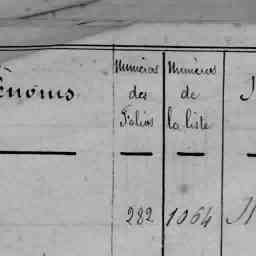 Numéros Numéros
énoms des de
Folios la liste
282 1064